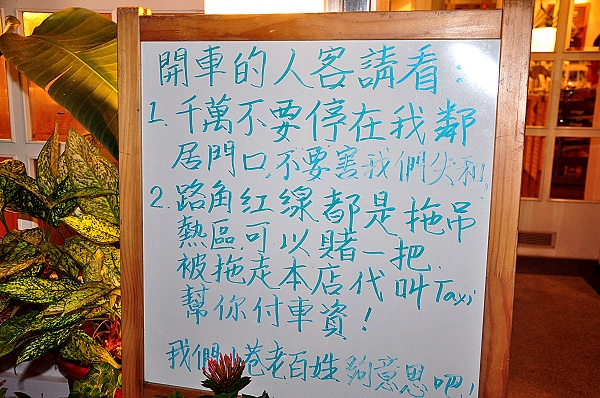 開車的人客請看：
1. 千萬不要停在我鄰
居門口，不要害我們失和！
2. 路角紅線都是拖吊
熱區可以賭一把.
被拖走本店代叫Taxi
幫你付車資！
我們小巷老百姓夠意思吧！